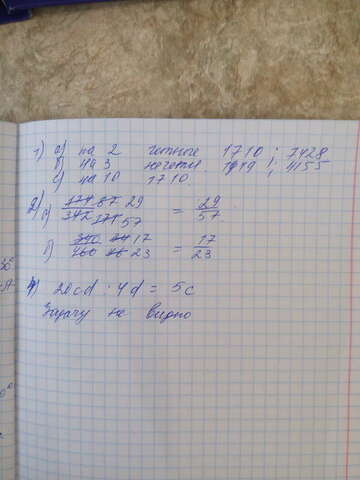 1) а) на 2 четные 1710 ; 7428
б) на 3 нечетн. 1419 ; 4155
с) на 10 1710.
2) а) 174 87 29 / 342 171 57 = 29/57
б) 340 34 17 / 460 46 23 = 17/23
4) 20cd : 4d = 5c
Задачу не видно